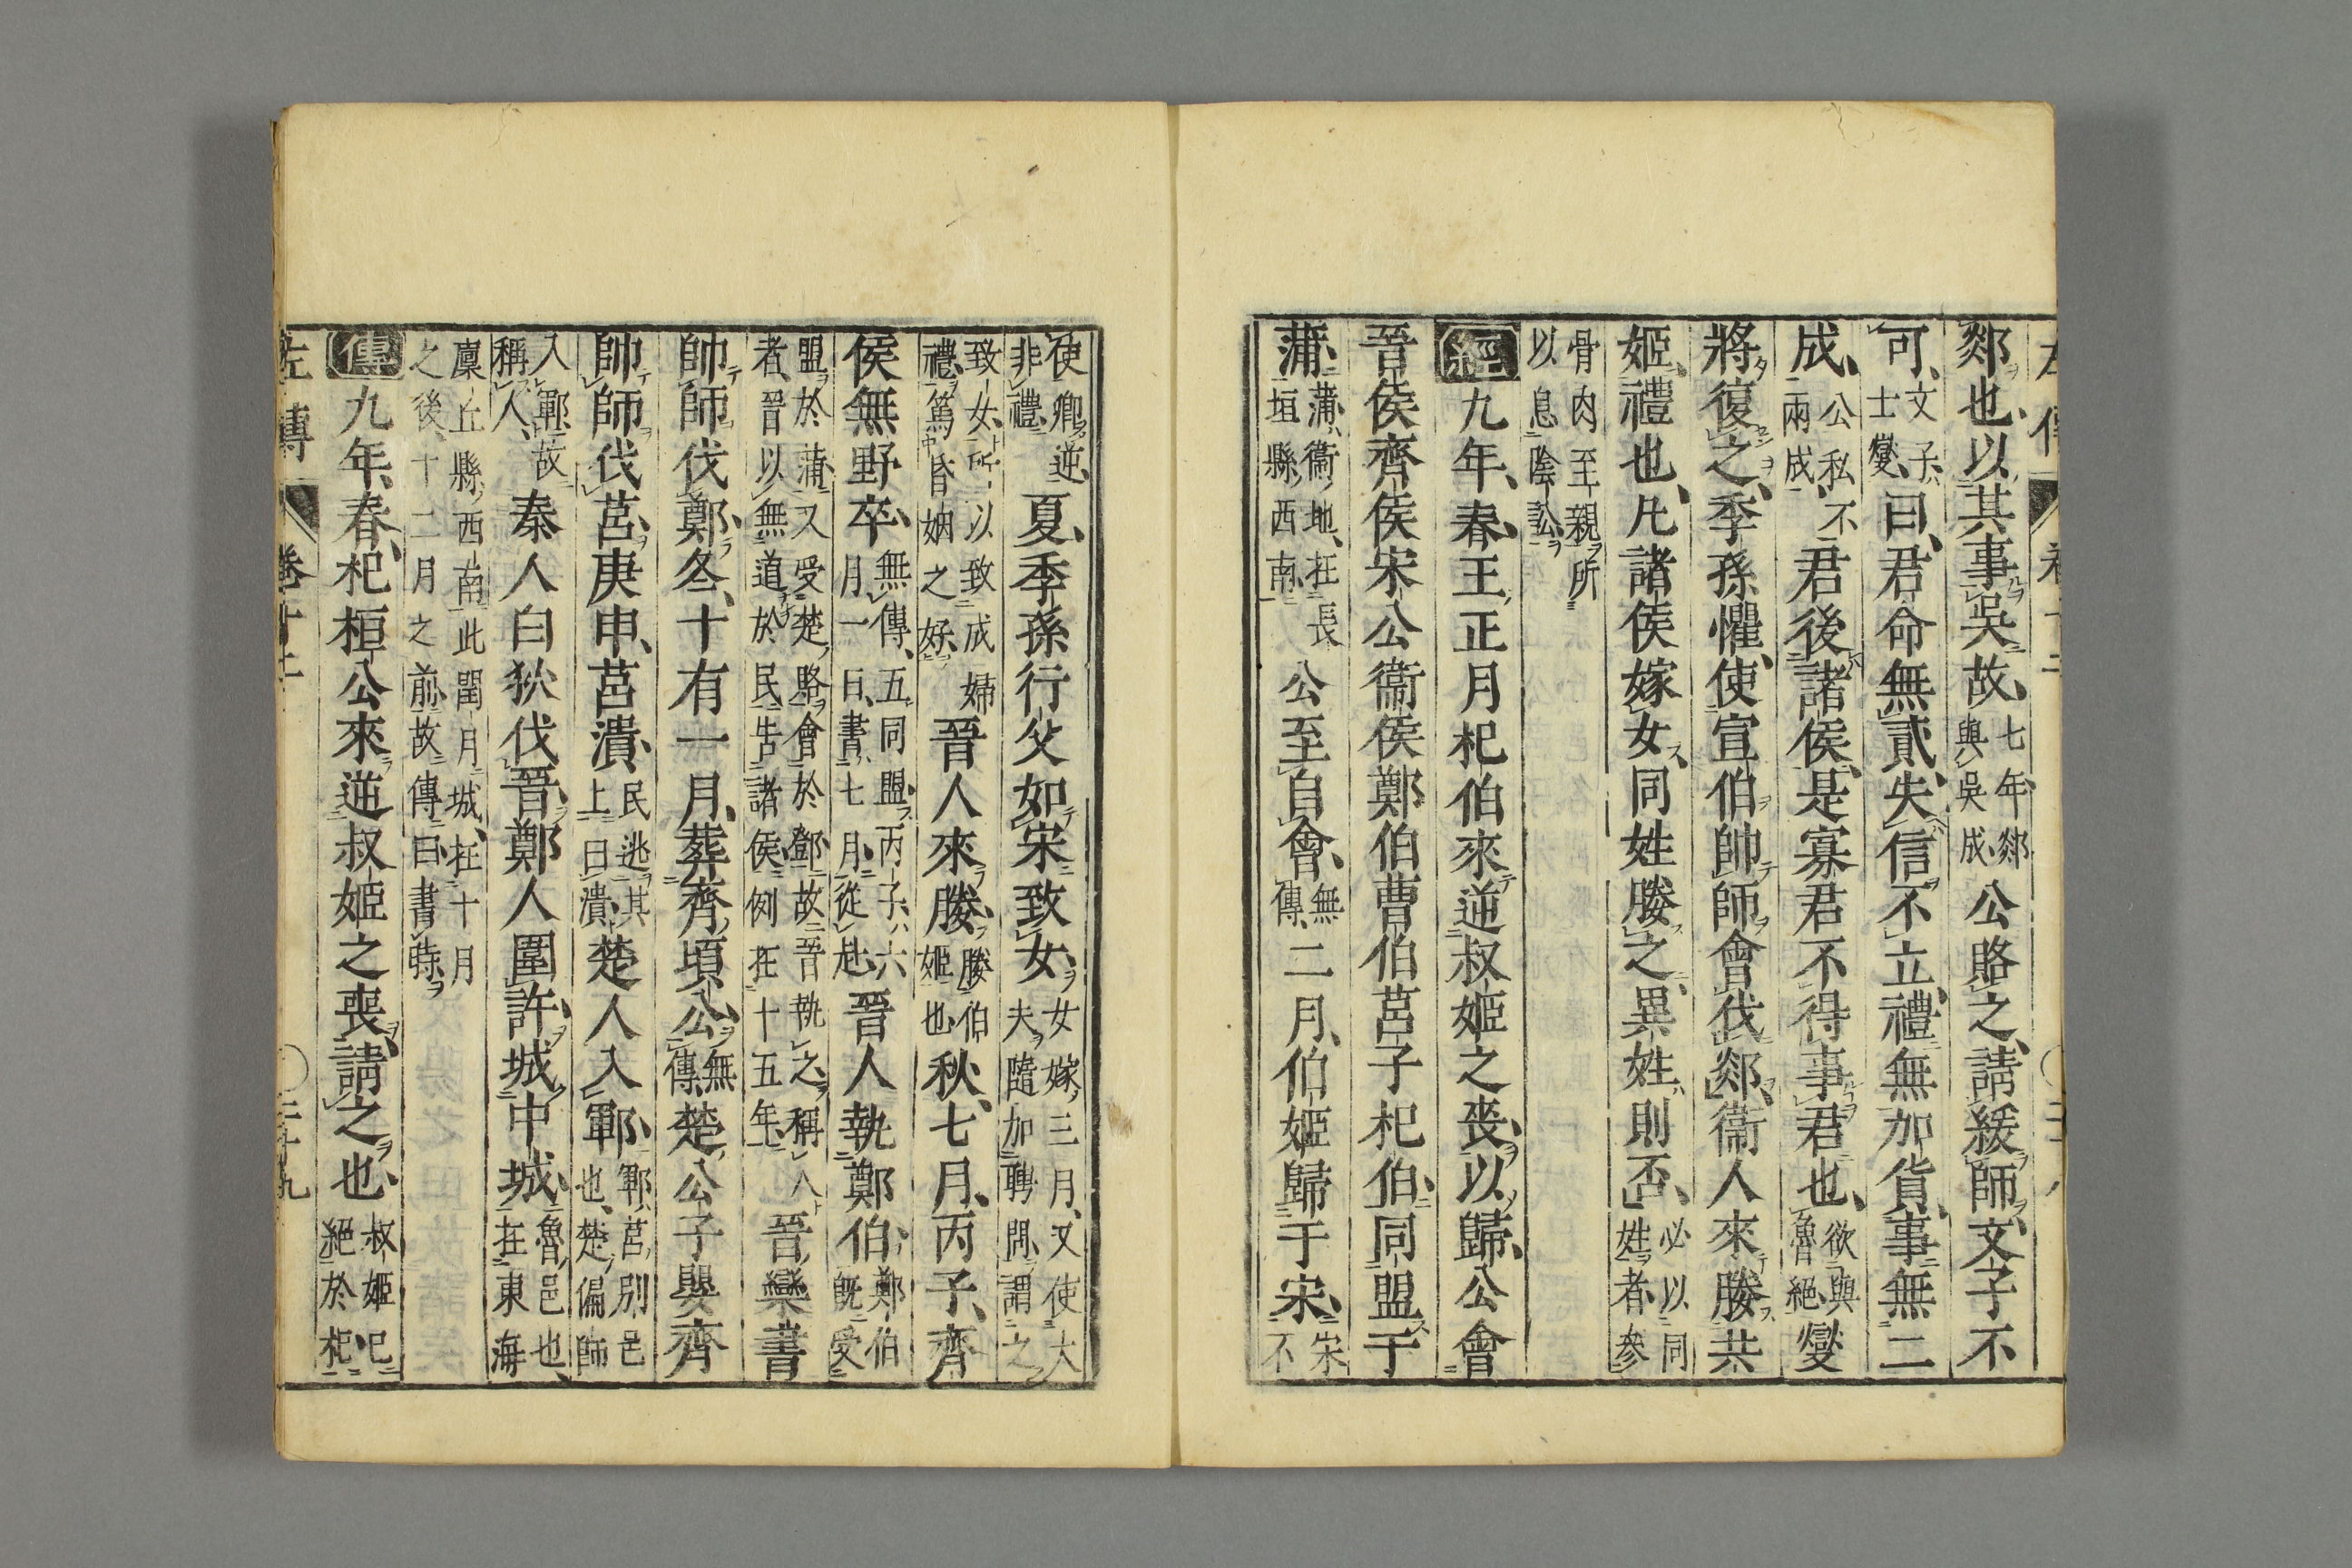 郯也、以其事吳故、七年郯與吳成、公賂之、請緩師、文子不
可、文子、士燮、曰、君命無貳、失信不立、禮無加貨、事無二
成、公私不兩成、君後諸侯、是寡君不得事君也、欲與魯絕、燮
將復之、季孫懼、使宣伯帥師會伐郯、衞人來媵共
姬、禮也、凡諸侯嫁女、同姓媵之、異姓則否、必以同姓者、參
骨肉至親、所以息陰訟、
經九年、春、王正月杞伯來逆叔姬之喪、以歸、公會
晉侯齊侯宋公衞侯鄭伯曹伯莒子杞伯、同盟于
蒲、蒲、衞地、在長垣縣西南、公至自會、無傳、二月、伯姬歸于宋、宋不
使卿逆、非禮、夏、季孫行父如宋致女、女嫁三月、又使大夫隨加聘問、謂之
致女、所以致成婦禮、篤昏姻之好、晉人來媵、媵伯姬也、秋、七月、丙子、齊
侯無野卒、無傳、五同盟、丙子、六月一日、書七月、從赴、晉人執鄭伯、鄭伯既受
盟於蒲、又受楚賂會於鄧、故晉執之、稱人者、晉以無道於民告諸侯、例在十五年、晉欒書
帥師伐鄭、冬、十有一月、葬齊頃公、無傳、楚公子嬰齊
帥師伐莒、庚申、莒潰、民逃其上曰潰、楚人入鄆、鄆、莒別邑也、楚偏師
入鄆、故稱人、秦人白狄伐晉、鄭人圍許、城中城、魯邑也、在東海
廩丘縣西南、此閏月城、在十月之後、十二月之前、故傳曰、書時、
傳九年、春、杞桓公來逆叔姬之喪、請之也、叔姬已絕於杞、
左傳 卷十二 二十九